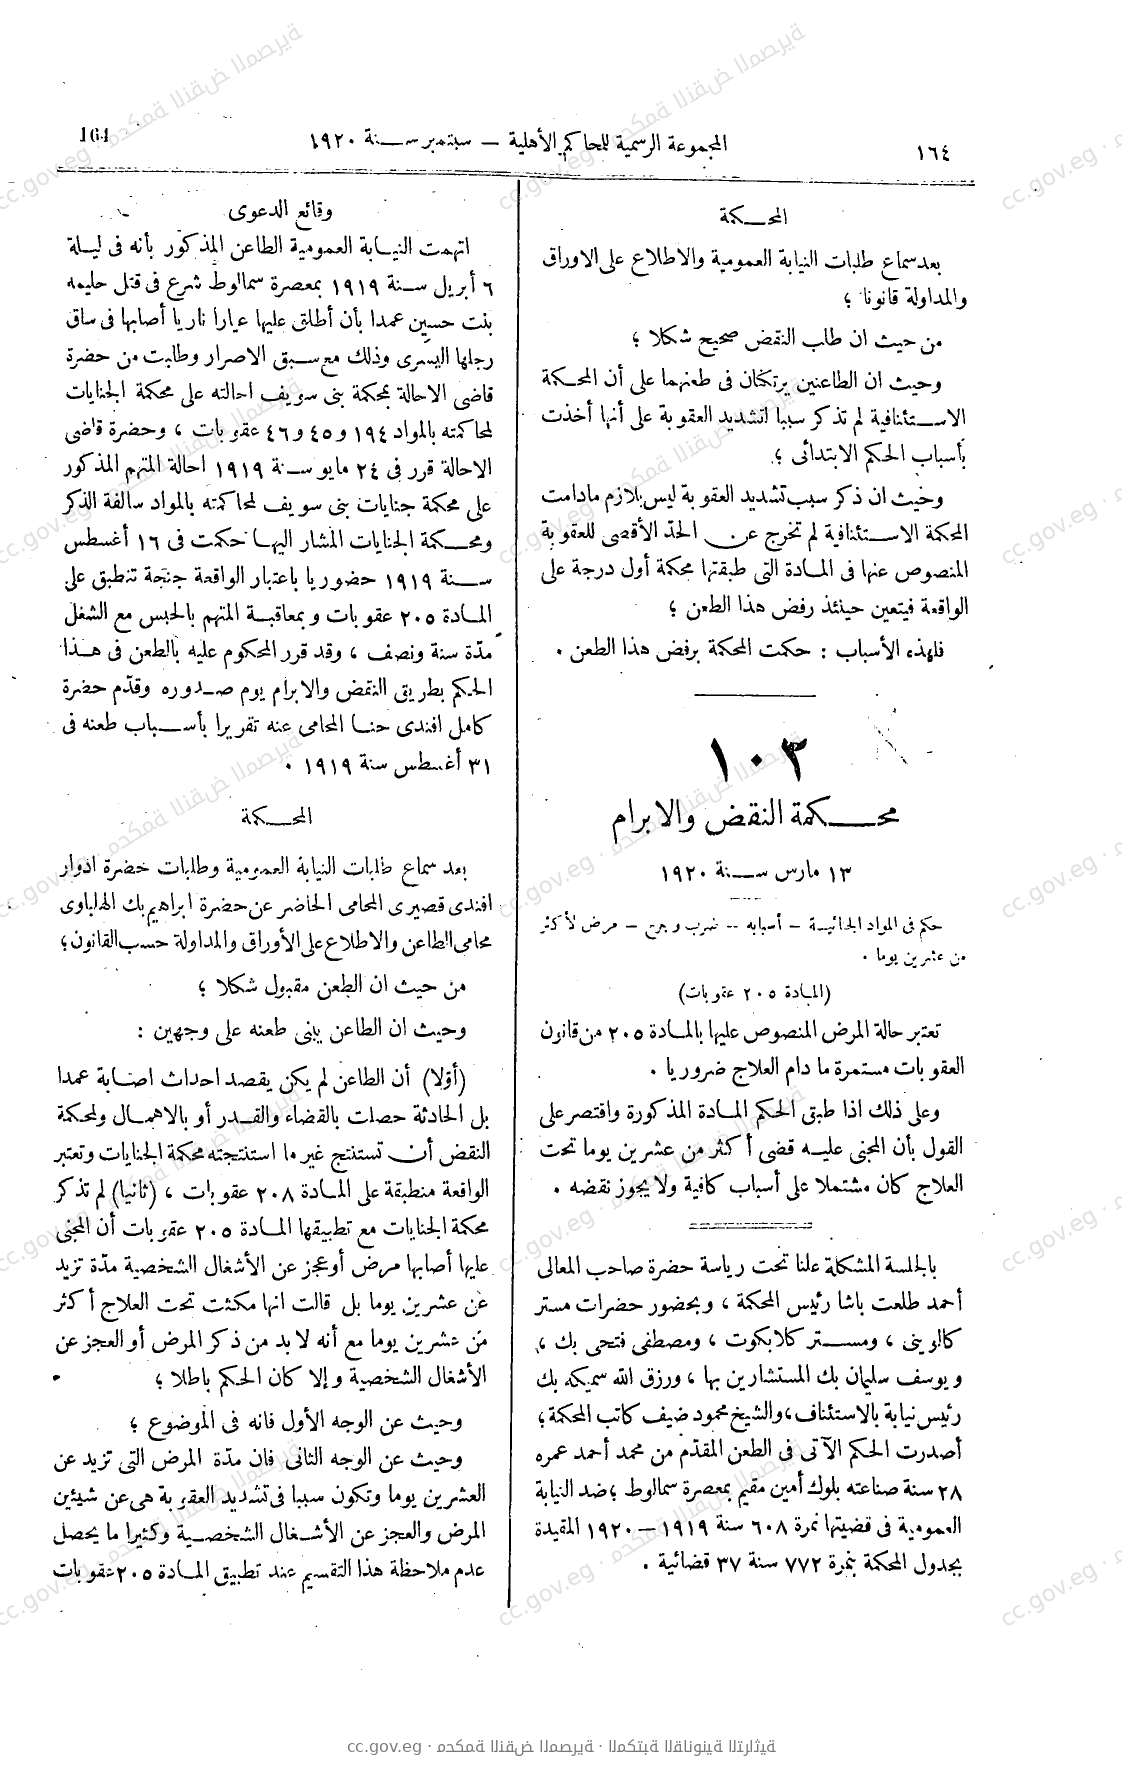 ١٦٤
المجموعة الرسمية للمحاكم الأهلية — سبتمبر سنة ١٩٢٠
164
المحكمة
بعد سماع طلبات النيابة العمومية والاطلاع على الاوراق
والمداولة قانونا ؛
من حيث ان طلب النقض صحيح شكلا ؛
وحيث ان الطاعنين يرتكنان فى طعنهما على أن المحكمة
الاستئنافية لم تذكر سببا لتشديد العقوبة على أنها أخذت
بأسباب الحكم الابتدائى ؛
وحيث ان ذكر سبب تشديد العقوبة ليس بلازم مادامت
المحكمة الاستئنافية لم تخرج عن الحدّ الأقصى للعقوبة
المنصوص عنها فى المادة التى طبقتها محكمة أول درجة على
الواقعة فيتعين حينئذ رفض هذا الطعن ؛
فلهذه الأسباب : حكمت المحكمة برفض هذا الطعن .
١٠٣
محكمة النقض والابرام
١٣ مارس سنة ١٩٢٠
حكم فى المواد الجنائية — أسبابه — ضرب وجرح — مرض لأكثر
من عشرين يوما .
(المادة ٢٠٥ عقوبات)
تعتبر حالة المرض المنصوص عليها بالمادة ٢٠٥ من قانون
العقوبات مستمرة ما دام العلاج ضروريا .
وعلى ذلك اذا طبق الحكم المادة المذكورة واقتصر على
القول بأن المجنى عليه قضى أكثر من عشرين يوما تحت
العلاج كان مشتملا على أسباب كافية ولا يجوز نقضه .
بالجلسة المشكلة علنا تحت رياسة حضرة صاحب المعالى
أحمد طلعت باشا رئيس المحكمة ، وبحضور حضرات مستر
كالوينى ، ومستر كلايكوت ، ومصطفى فتحى بك ،
ويوسف سليمان بك المستشارين بها ، ورزق الله سميكه بك
رئيس نيابة بالاستئناف، والشيخ محمود ضيف كاتب المحكمة ؛
أصدرت الحكم الآتى فى الطعن المقدّم من محمد أحمد عمره
٢٨ سنة صناعته بلوك أمين مقيم بمعصرة سمالوط ؛ ضد النيابة
العمومية فى قضيتها نمرة ٦٠٨ سنة ١٩١٩ — ١٩٢٠ المقيدة
بجدول المحكمة بنمرة ٧٧٢ سنة ٣٧ قضائية .
وقائع الدعوى
اتهمت النيابة العمومية الطاعن المذكور بأنه فى ليلة
٦ أبريل سنة ١٩١٩ بمعصرة سمالوط شرع فى قتل حليمه
بنت حسين عمدا بأن أطلق عليها عيارا ناريا أصابها فى ساق
رجلها اليسرى وذلك مع سبق الاصرار وطلبت من حضرة
قاضى الاحالة بمحكمة بنى سويف احالته على محكمة الجنايات
لمحاكمته بالمواد ١٩٤ و٤٥ و٤٦ عقوبات ، وحضرة قاضى
الاحالة قرر فى ٢٤ مايو سنة ١٩١٩ احالة المتهم المذكور
على محكمة جنايات بنى سويف لمحاكمته بالمواد سالفة الذكر
ومحكمة الجنايات المشار اليها حكمت فى ١٦ أغسطس
سنة ١٩١٩ حضوريا باعتبار الواقعة جنحة تنطبق على
المادة ٢٠٥ عقوبات وبمعاقبة المتهم بالحبس مع الشغل
مدّة سنة ونصف ، وقد قرر المحكوم عليه بالطعن فى هذا
الحكم بطريق النقض والابرام يوم صدوره وقدّم حضرة
كامل افندى حنا المحامى عنه تقريرا بأسباب طعنه فى
٣١ أغسطس سنة ١٩١٩ .
المحكمة
بعد سماع طلبات النيابة العمومية وطلبات حضرة ادوار
افندى قصيرى المحامى الحاضر عن حضرة ابراهيم بك الهلباوى
محامى الطاعن والاطلاع على الأوراق والمداولة حسب القانون ؛
من حيث ان الطعن مقبول شكلا ؛
وحيث ان الطاعن يبنى طعنه على وجهين :
(أوّلا) أن الطاعن لم يكن يقصد احداث اصابة عمدا
بل الحادثة حصلت بالقضاء والقدر أو بالاهمال ولمحكمة
النقض أن تستنتج غير ما استنتجته محكمة الجنايات وتعتبر
الواقعة منطبقة على المادة ٢٠٨ عقوبات ، (ثانيا) لم تذكر
محكمة الجنايات مع تطبيقها المادة ٢٠٥ عقوبات أن المجنى
عليها أصابها مرض أو عجز عن الأشغال الشخصية مدّة تزيد
عن عشرين يوما بل قالت انها مكثت تحت العلاج أكثر
من عشرين يوما مع أنه لا بد من ذكر المرض أو العجز عن
الأشغال الشخصية وإلا كان الحكم باطلا ؛
وحيث عن الوجه الأول فانه فى الموضوع ؛
وحيث عن الوجه الثانى فان مدّة المرض التى تزيد عن
العشرين يوما وتكون سببا فى تشديد العقوبة هى عن شيئين
المرض والعجز عن الأشغال الشخصية وكثيرا ما يحصل
عدم ملاحظة هذا التقسيم عند تطبيق المادة ٢٠٥ عقوبات
cc.gov.eg · محكمة النقض المصرية · المكتبة القانونية التراثية